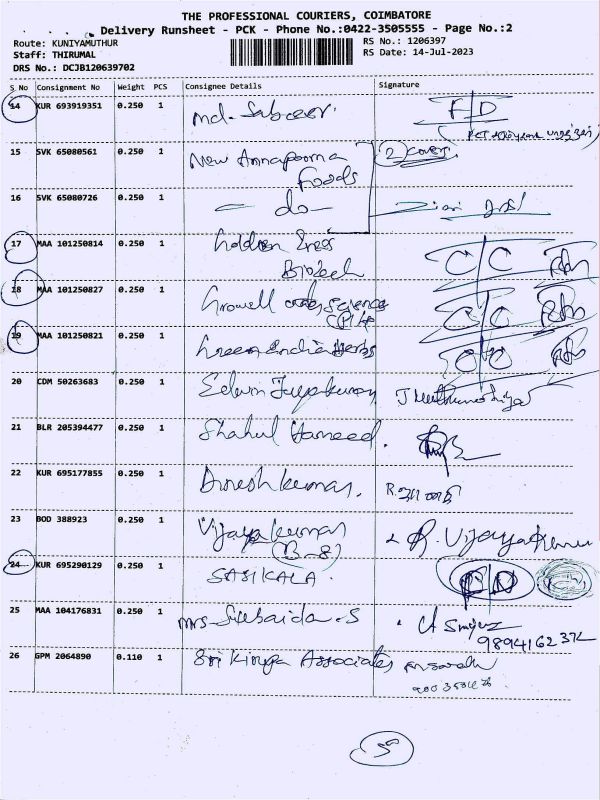 THE PROFESSIONAL COURIERS, COIMBATORE
Delivery Runsheet - PCK - Phone No.:0422-3505555 - Page No.:2
Route: KUNIYAMUTHUR RS No.: 1206397
Staff: THIRUMAL RS Date: 14-Jul-2023
DRS No.: DCJB120639702
S No Consignment No Weight PCS Consignee Details Signature
14 KUR 693919351 0.250 1 Md. Sabeer. F D
15 SVK 65080561 0.250 1 New Annapoorna Foods 2 covers
16 SVK 65080726 0.250 1 - do -
17 MAA 101250814 0.250 1 Golden Biotech C C
18 MAA 101250827 0.250 1 Growell Science C C
19 MAA 101250821 0.250 1 Green India Herbs C C
20 CDM 50263683 0.250 1 Edwin Jeyakumar
21 BLR 205394477 0.250 1 Shahul Hameed.
22 KUR 695177855 0.250 1 Dineshkumar.
23 BOD 388923 0.250 1 Vijayakumar R. Vijayakumar
(B-8)
24 KUR 695290129 0.250 1 SASIKALA.
25 MAA 104176831 0.250 1 Mrs. Subaida.S
26 GPM 2064890 0.110 1 Sri Kirupa Associates